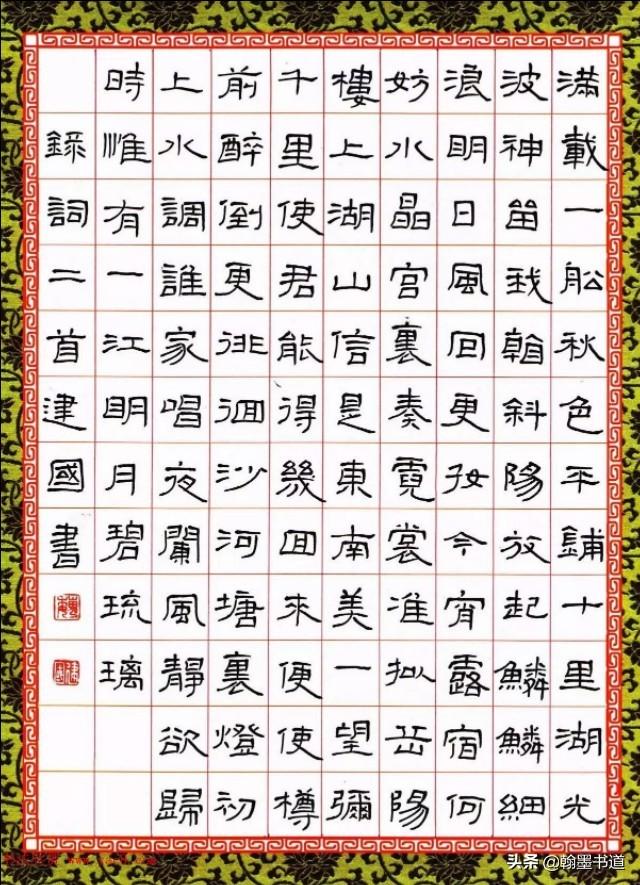 滿載一船秋色平鋪十里湖光
波神留我看斜陽放起鱗鱗細
浪明日風回更好今宵露宿何
妨水晶宮裏奏霓裳准拟岳陽
樓上湖山信是東南美一望彌
千里使君能得幾回來便使樽
前醉倒更徘徊沙河塘裏燈初
上水調誰家唱夜闌風靜欲歸
時惟有一江明月碧琉璃
錄詞二首建國書
头条 @翰墨书道